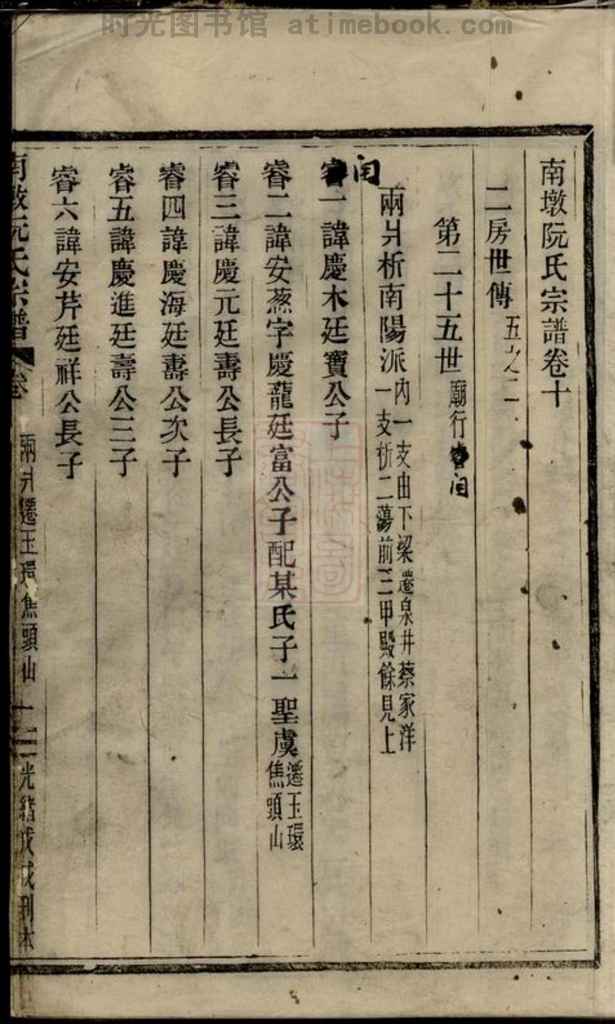 时光图书馆 atimebook.com
南墩阮氏宗譜卷十
二房世傳 五之二
第二十五世 廟行
兩爿析南陽派 內一支由下梁遷泉井蔡家洋
一支析二蕩前三甲殿餘見上
一諱慶木廷寶公子
睿二諱安蒸字慶龍廷富公子配某氏子一聖虞 遷玉環
焦頭山
睿三諱慶元廷壽公長子
睿四諱慶海廷壽公次子
睿五諱慶進廷壽公三子
睿六諱安芹廷祥公長子
南墩阮氏宗譜 卷 兩爿遷玉環焦頭山 一 光緒戊戌刊本